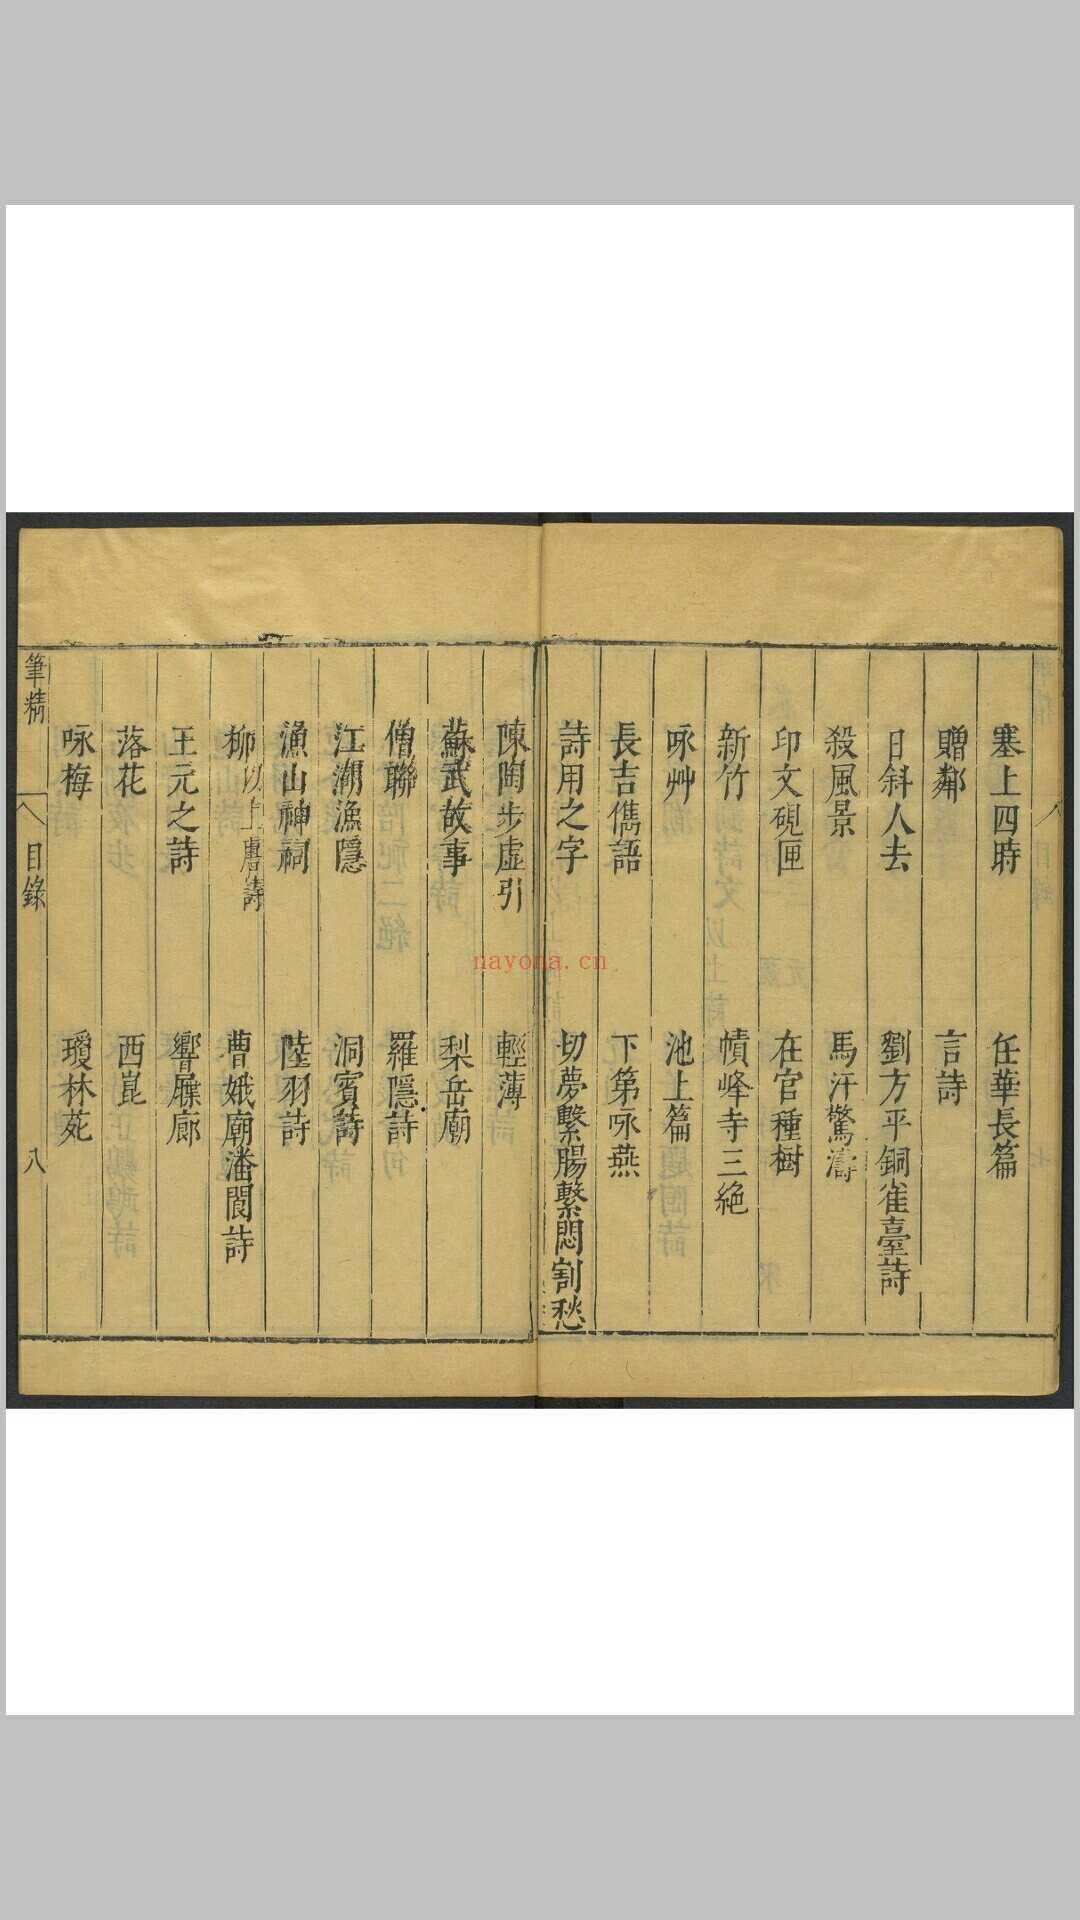 塞上四時
任華長篇
贈鄰
言詩
日斜人去
劉方平銅雀臺詩
殺風景
馬汗驚濤
印文硯匣
在官種樹
新竹
幘峰寺三絕
咏艸
池上篇
長吉儁語
下第咏燕
詩用之字
切夢繫腸繫悶割愁
陳陶步虛引
輕薄
蘇武故事
梨岳廟
僧聯
羅隱詩
江湖漁隱
洞賓詩
漁山神祠
陸羽詩
柳以上唐詩
曹娥廟潘閬詩
王元之詩
響屧廊
落花
西崑
咏梅
瓊林苑
筆精
目錄
八
nayona.cn